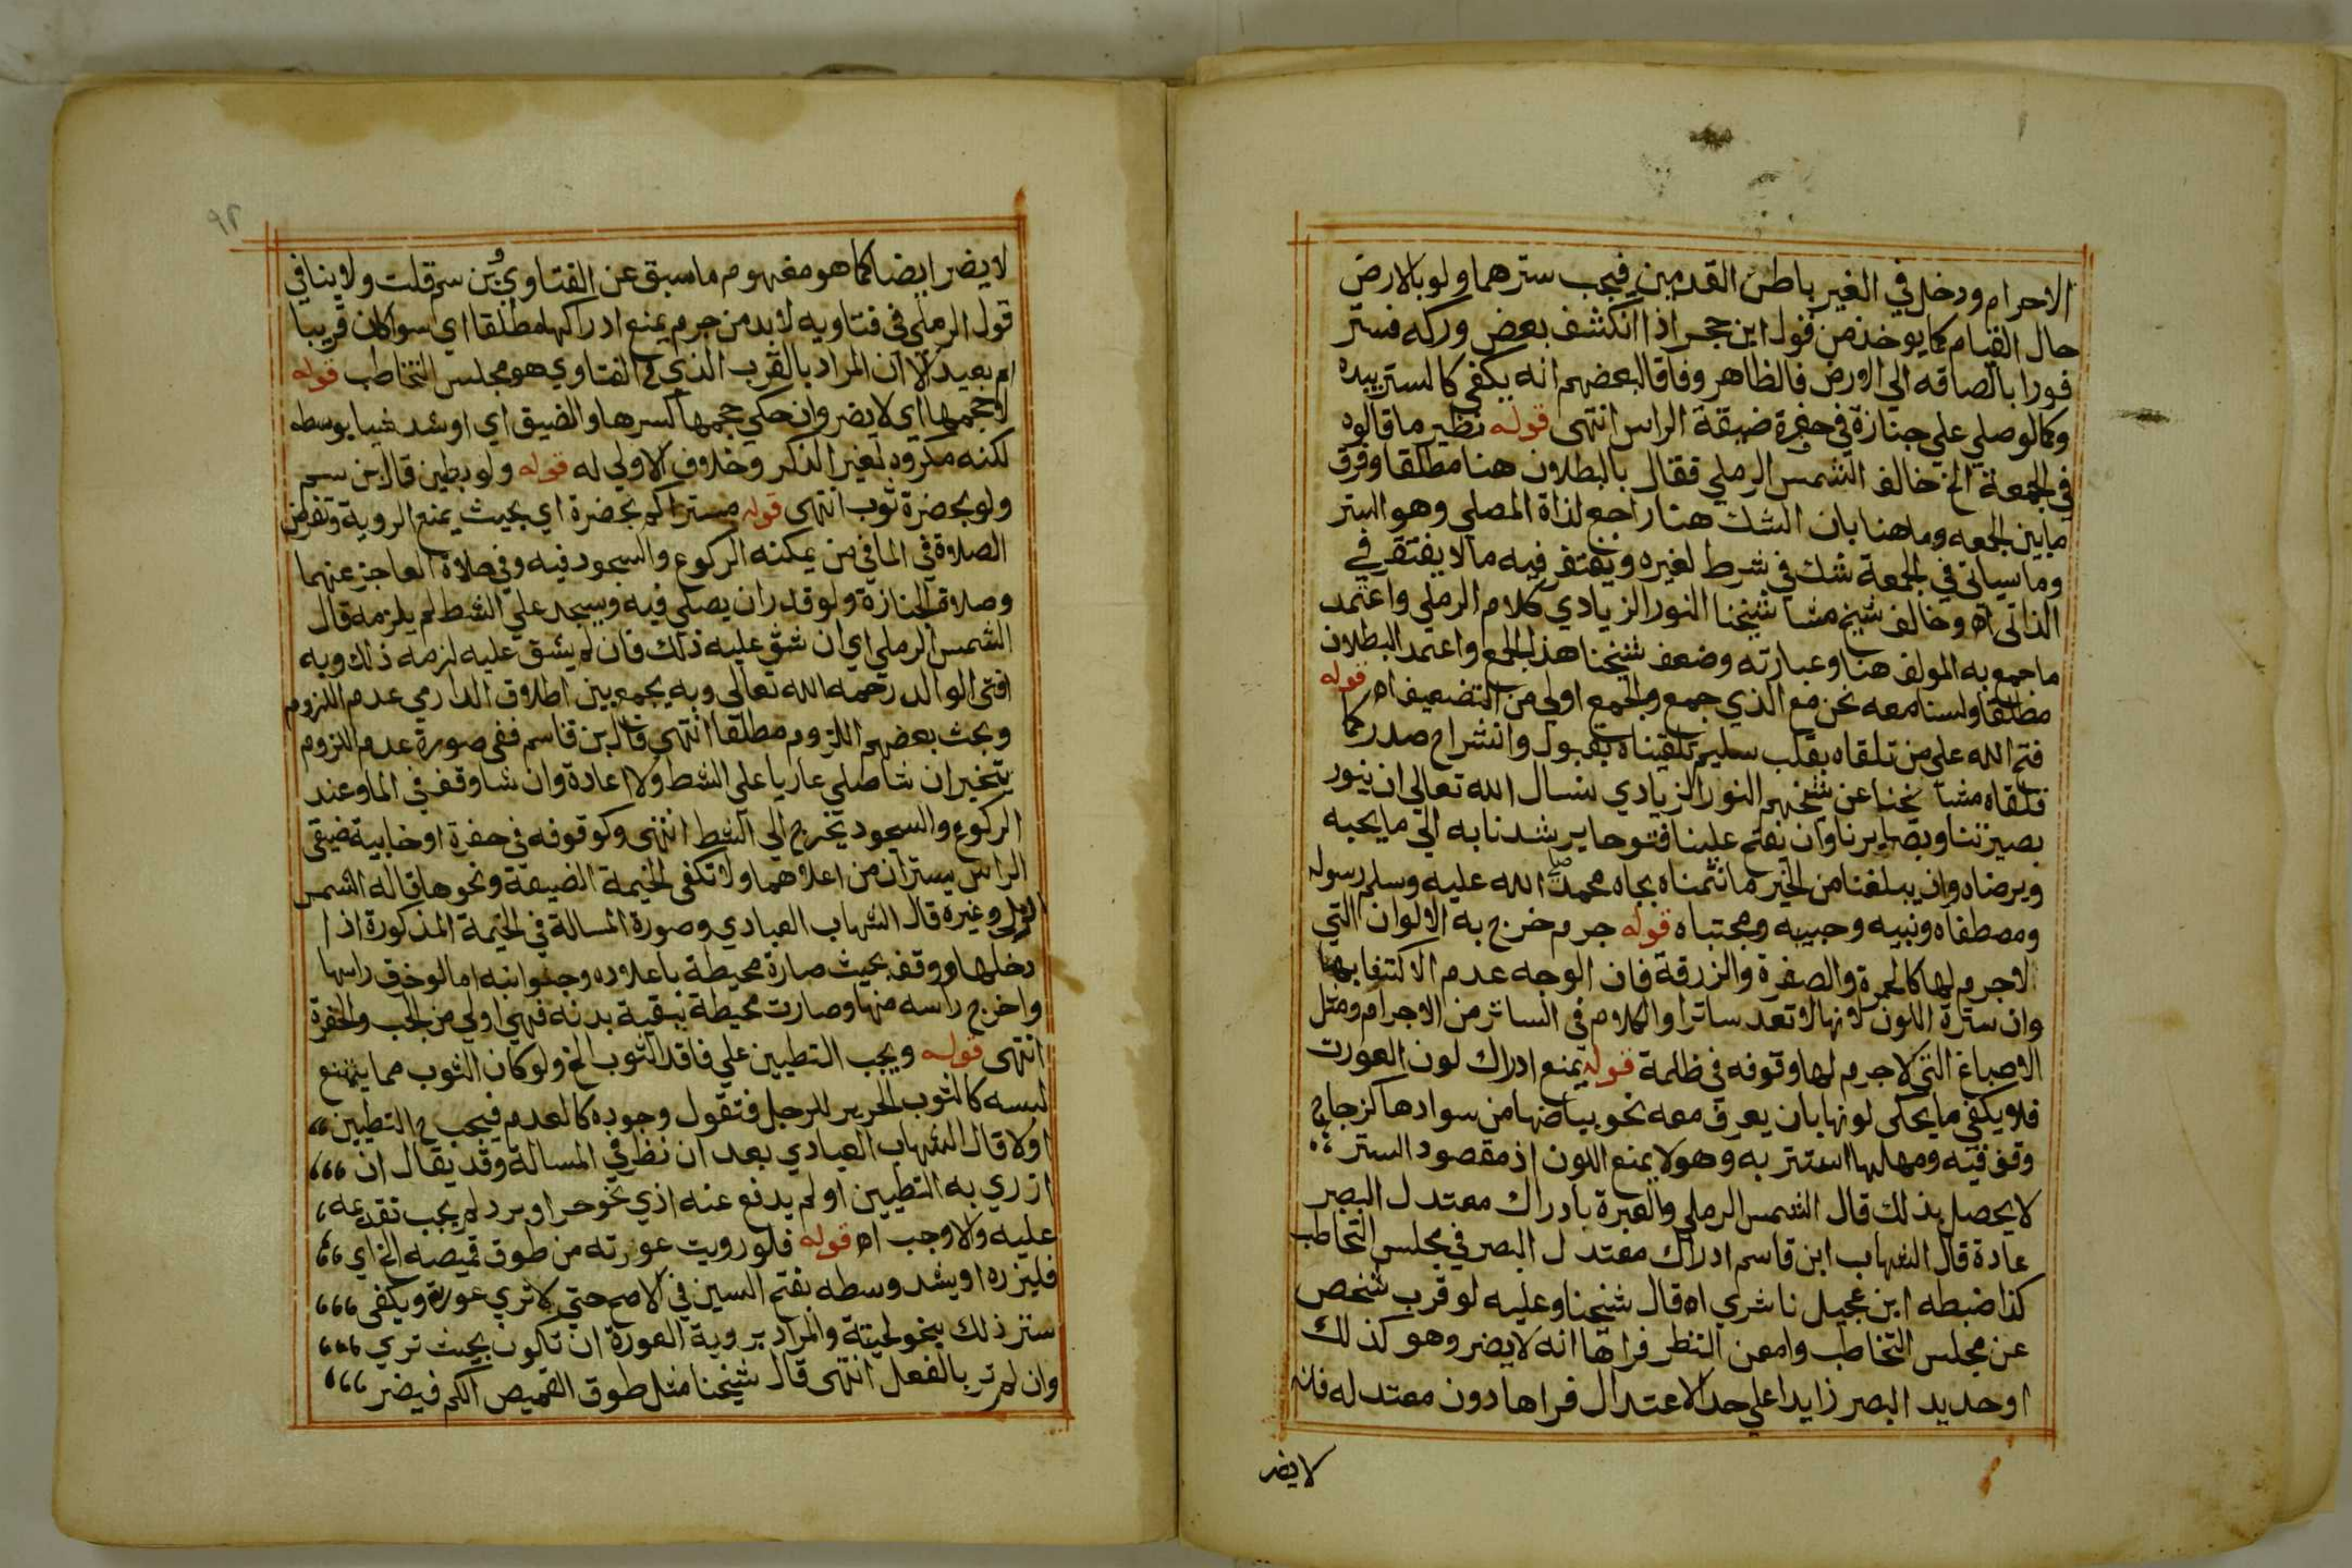 الاحرام ودخل في الغير باطن القدمين فيجب سترهما ولو بالارض
حال القيام كما يوخذ من قول ابن حجر اذا انكشف بعض وركه فستر
فورا بالصاقه الي الارض فالظاهر وفاقا لبعضهم انه يكفي كالستر بيده
وكما لو صلي علي جنازة في حفرة ضيقة الراس انتهى قوله نظير ما قالوه
في الجمعة الخ خالف الشمس الرملي فقال بالبطلان هنا مطلقا وفرق
ما بين الجمعه وما هنا بان الشك هنا راجع لذاة المصلي وهو الستر
وما سياتي في الجمعة شك في شرط لغيره ويغتفر فيه مالا يفتقر في
الذاتى اه وخالف شيخ مشا شيخنا النور الزيادي كلام الرملي واعتمد
ما جمع به المولف هنا وعبارته وضعف شيخنا هذا الجمع واعتمد البطلان
مطلقا ولسنا معه نحن مع الذي جمع والجمع اولي من التضعيف اه قوله
فتح الله علي من تلقاه بقلب سليم تلقيناه بقبول وانشراح صدر كما
تلقاه مشا يخنا عن شيخهم النور الزيادي نسال الله تعالي ان ينور
بصيرتنا وبصايرنا وان يفتح علينا فتوحا يرشدنا به الي ما يحبه
ويرضاه وان يبلغنا من الخير ما نتمناه بجاه محمد صلى الله عليه وسلم رسوله
ومصطفاه ونبيه وحبيبه ومجتباه قوله جرم خرج به الالوان التي
لا جرم لها كالحمرة والصفرة والزرقة فان الوجه عدم الاكتفا بها
وان سترة اللون لانها لا تعد ساترا والكلام فى الساتر من الاجرام ومثل
الاصباغ التي لا جرم لها وقوفه في ظلمة قوله يمنع ادراك لون العورت
فلا يكفي ما يحكى لونها بان يعرف معه نحو بياضها من سوادها كزجاج
وقف فيه ومهلهل استتر به وهو لا يمنع اللون اذ مقصود الستر
لا يحصل بذلك قال الشمس الرملي والعبرة بادراك معتدل البصر
عادة قال الشهاب ابن قاسم ادراك معتدل البصر في مجلس التخاطب
كذا ضبطه ابن عجيل ناشري اه قال شيخنا وعليه لو قرب شخص
عن مجلس التخاطب وامعن النظر فراها انه لا يضر وهو كذلك
او حديد البصر زايدا علي حد الاعتدال فراها دون معتدله فانه
لا يضر
٩٢
لا يضر ايضا كما هو مفهوم ما سبق عن الفتاوي وبن سم قلت ولا ينافي
قول الرملي في فتاويه لا بد من جرم يمنع ادراكها مطلقا اي سوا كان قريبا
ام بعيد الا ان المراد بالقرب الذي في الفتاوي هو مجلس التخاطب قوله
لا حجمها اي لا يضر وان حكي حجمها كسرها والضيق اي او شد شيا بوسطه
لكنه مكروه لغير الذكر وخلاف الاولي له قوله ولو بطين قال بن سم
ولو بحضرة ثوب انتهى قوله متراكم بخضرة اي بحيث يمنع الروية وتفرض
الصلاة في الما في من يمكنه الركوع والسجود فيه وفي صلاة العاجز عنهما
وصلاة الجنازة ولو قدر ان يصلي فيه ويسجد علي الشط لم يلزمه قال
الشمس الرملي اي ان شق عليه ذلك فان لم يشق عليه لزمه ذلك وبه
افتى الوالد رحمه الله تعالى وبه يجمع بين اطلاق الدارمي عدم اللزوم
وبحث بعضهم اللزوم مطلقا انتهي قال بن قاسم ففي صورة عدم اللزوم
يتخير ان شا صلي عاريا علي الشط ولا اعادة وان شا وقف في الما وعند
الركوع والسجود يخرج الي الشط انتهى وكوقوفه في حفرة او خابية ضيقي
الراس يستران من اعلاهما ولا تكفى الخيمة الضيقة ونحوها قاله الشمس
الرملي وغيره قال الشهاب العبادي وصورة المسالة في الخيمة المذكورة اذا
دخلها ووقف بحيث صارة محيطة باعلاه وجوانبه اما لو خرق راسها
واخرج راسه منها وصارت محيطة ببقية بدنه فهي اولي من الجب والحفرة
انتهى قوله ويجب التطيين علي فاقد الثوب الخ ولو كان الثوب مما يمتنع
لبسه كالثوب الحرير للرجل فتقول وجوده كالعدم فيجب ح التطيين
اولا قال الشهاب العبادي بعد ان نظر في المسالة وقد يقال ان
ازري به التطيين او لم يدفع عنه اذي نحو حر او برد لم يجب تقديمه
عليه والا وجب اه قوله فلو رويت عورته من طوق قميصه الخ اي
فليزره او يشد وسطه بفتح السين في الاصح حتي لا تري عورة ويكفي
ستر ذلك بنحو لحيتة والمراد بروية العورة ان تكون بحيث تري
وان لم تر بالفعل انتهى قال شيخنا مثل طوق القميص الكم فيضر